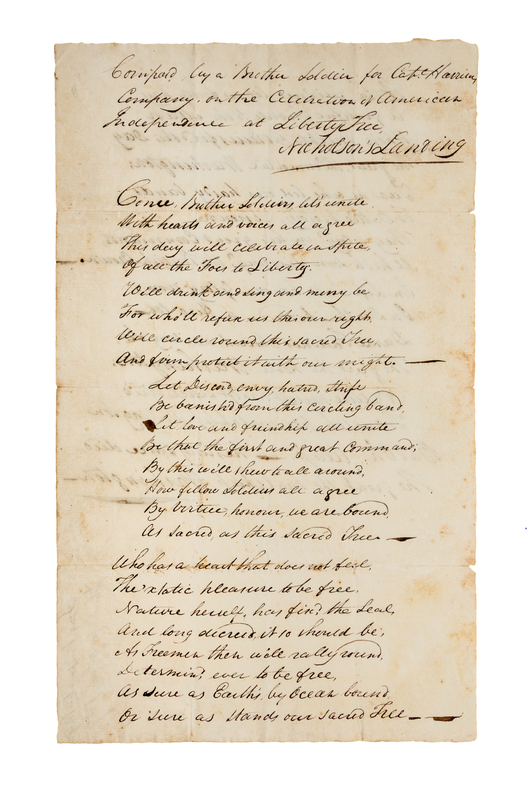 Compos'd by a Brother Soldier for Capt. Harrisons
Company, on the Celebration of American
Independence at Liberty Tree,
Nicholson's Landing
Come, Brother Soldiers lets unite
With hearts and voices all agree
This day will celebrate in spite,
Of all the Foes to Liberty.
We'll drink and sing and merry be
For who'll refuse us this our right,
We'll circle round this sacred Tree
And firm protect it with our might.
Let Discord, envy, hatred, strife
Be banish'd from this circling band,
Let love and friendship all unite
Be that the first and great command;
By this we'll shew to all around,
How fellow Soldiers all agree
By Virtue, honour, we are bound,
As sacred, as this sacred Tree
Who has a heart that does not feel,
The 'xtatic pleasure to be free,
Nature herself, has fix'd the Seal,
And long decreed, it so should be;
As Freemen then we'll rally round,
Determin'd ever to be free,
As sure as Earth's by Ocean bound,
Or sure as stands our sacred Tree